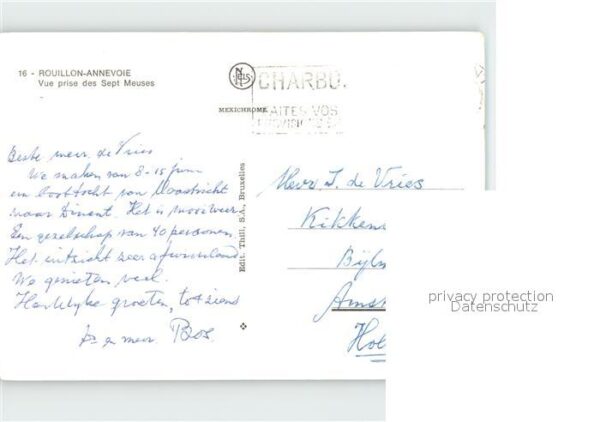 16 - ROUILLON-ANNEVOIE
Vue prise des Sept Meuses
NELS
MEXICHROME
CHARBO.
AITES VOS
Beste mevr. de Vries
We maken van 8-15 juni
een boottocht van Maastricht
naar Dinant. Het is mooi weer
Een gezelschap van 40 personen.
Het uitzicht zeer afwisselend
We genieten veel.
Hartelijke groeten, tot ziens
en mevr. Bos.
Edit. Thill, S.A., Bruxelles
Mevr. J. de Vries
Kikken
Bijlm
Amst
Hol
privacy protection
Datenschutz